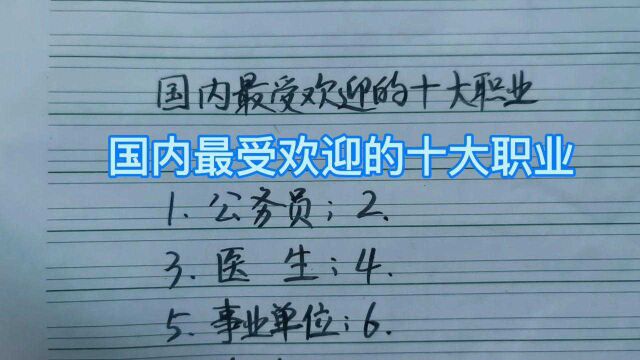 国内最受欢迎的十大职业
国内最受欢迎的十大职业
1. 公务员；2.
3. 医 生；4.
5. 事业单位；6.